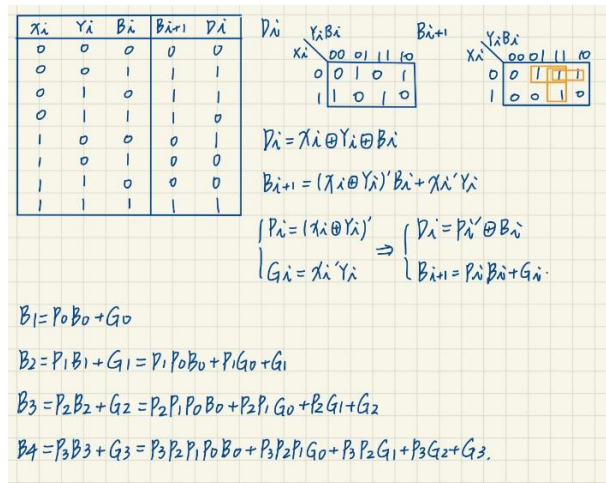 Xi Yi Bi Bi+1 Di
0 0 0 0 0
0 0 1 1 1
0 1 0 1 1
0 1 1 1 0
1 0 0 0 1
1 0 1 0 0
1 1 0 0 0
1 1 1 1 1
Di
YiBi
Xi 00 01 11 10
0 0 1 0 1
1 1 0 1 0
Bi+1
YiBi
Xi 00 01 11 10
0 0 1 1 1
1 0 0 1 0
Di = Xi⊕Yi⊕Bi
Bi+1 = (Xi⊕Yi)'Bi + Xi'Yi
{Pi = (Xi⊕Yi)' ⇒ {Di = Pi'⊕Bi
Gi = Xi'Yi Bi+1 = PiBi + Gi.
B1 = P0B0 + G0
B2 = P1B1 + G1 = P1P0B0 + P1G0 + G1
B3 = P2B2 + G2 = P2P1P0B0 + P2P1G0 + P2G1 + G2
B4 = P3B3 + G3 = P3P2P1P0B0 + P3P2P1G0 + P3P2G1 + P3G2 + G3.